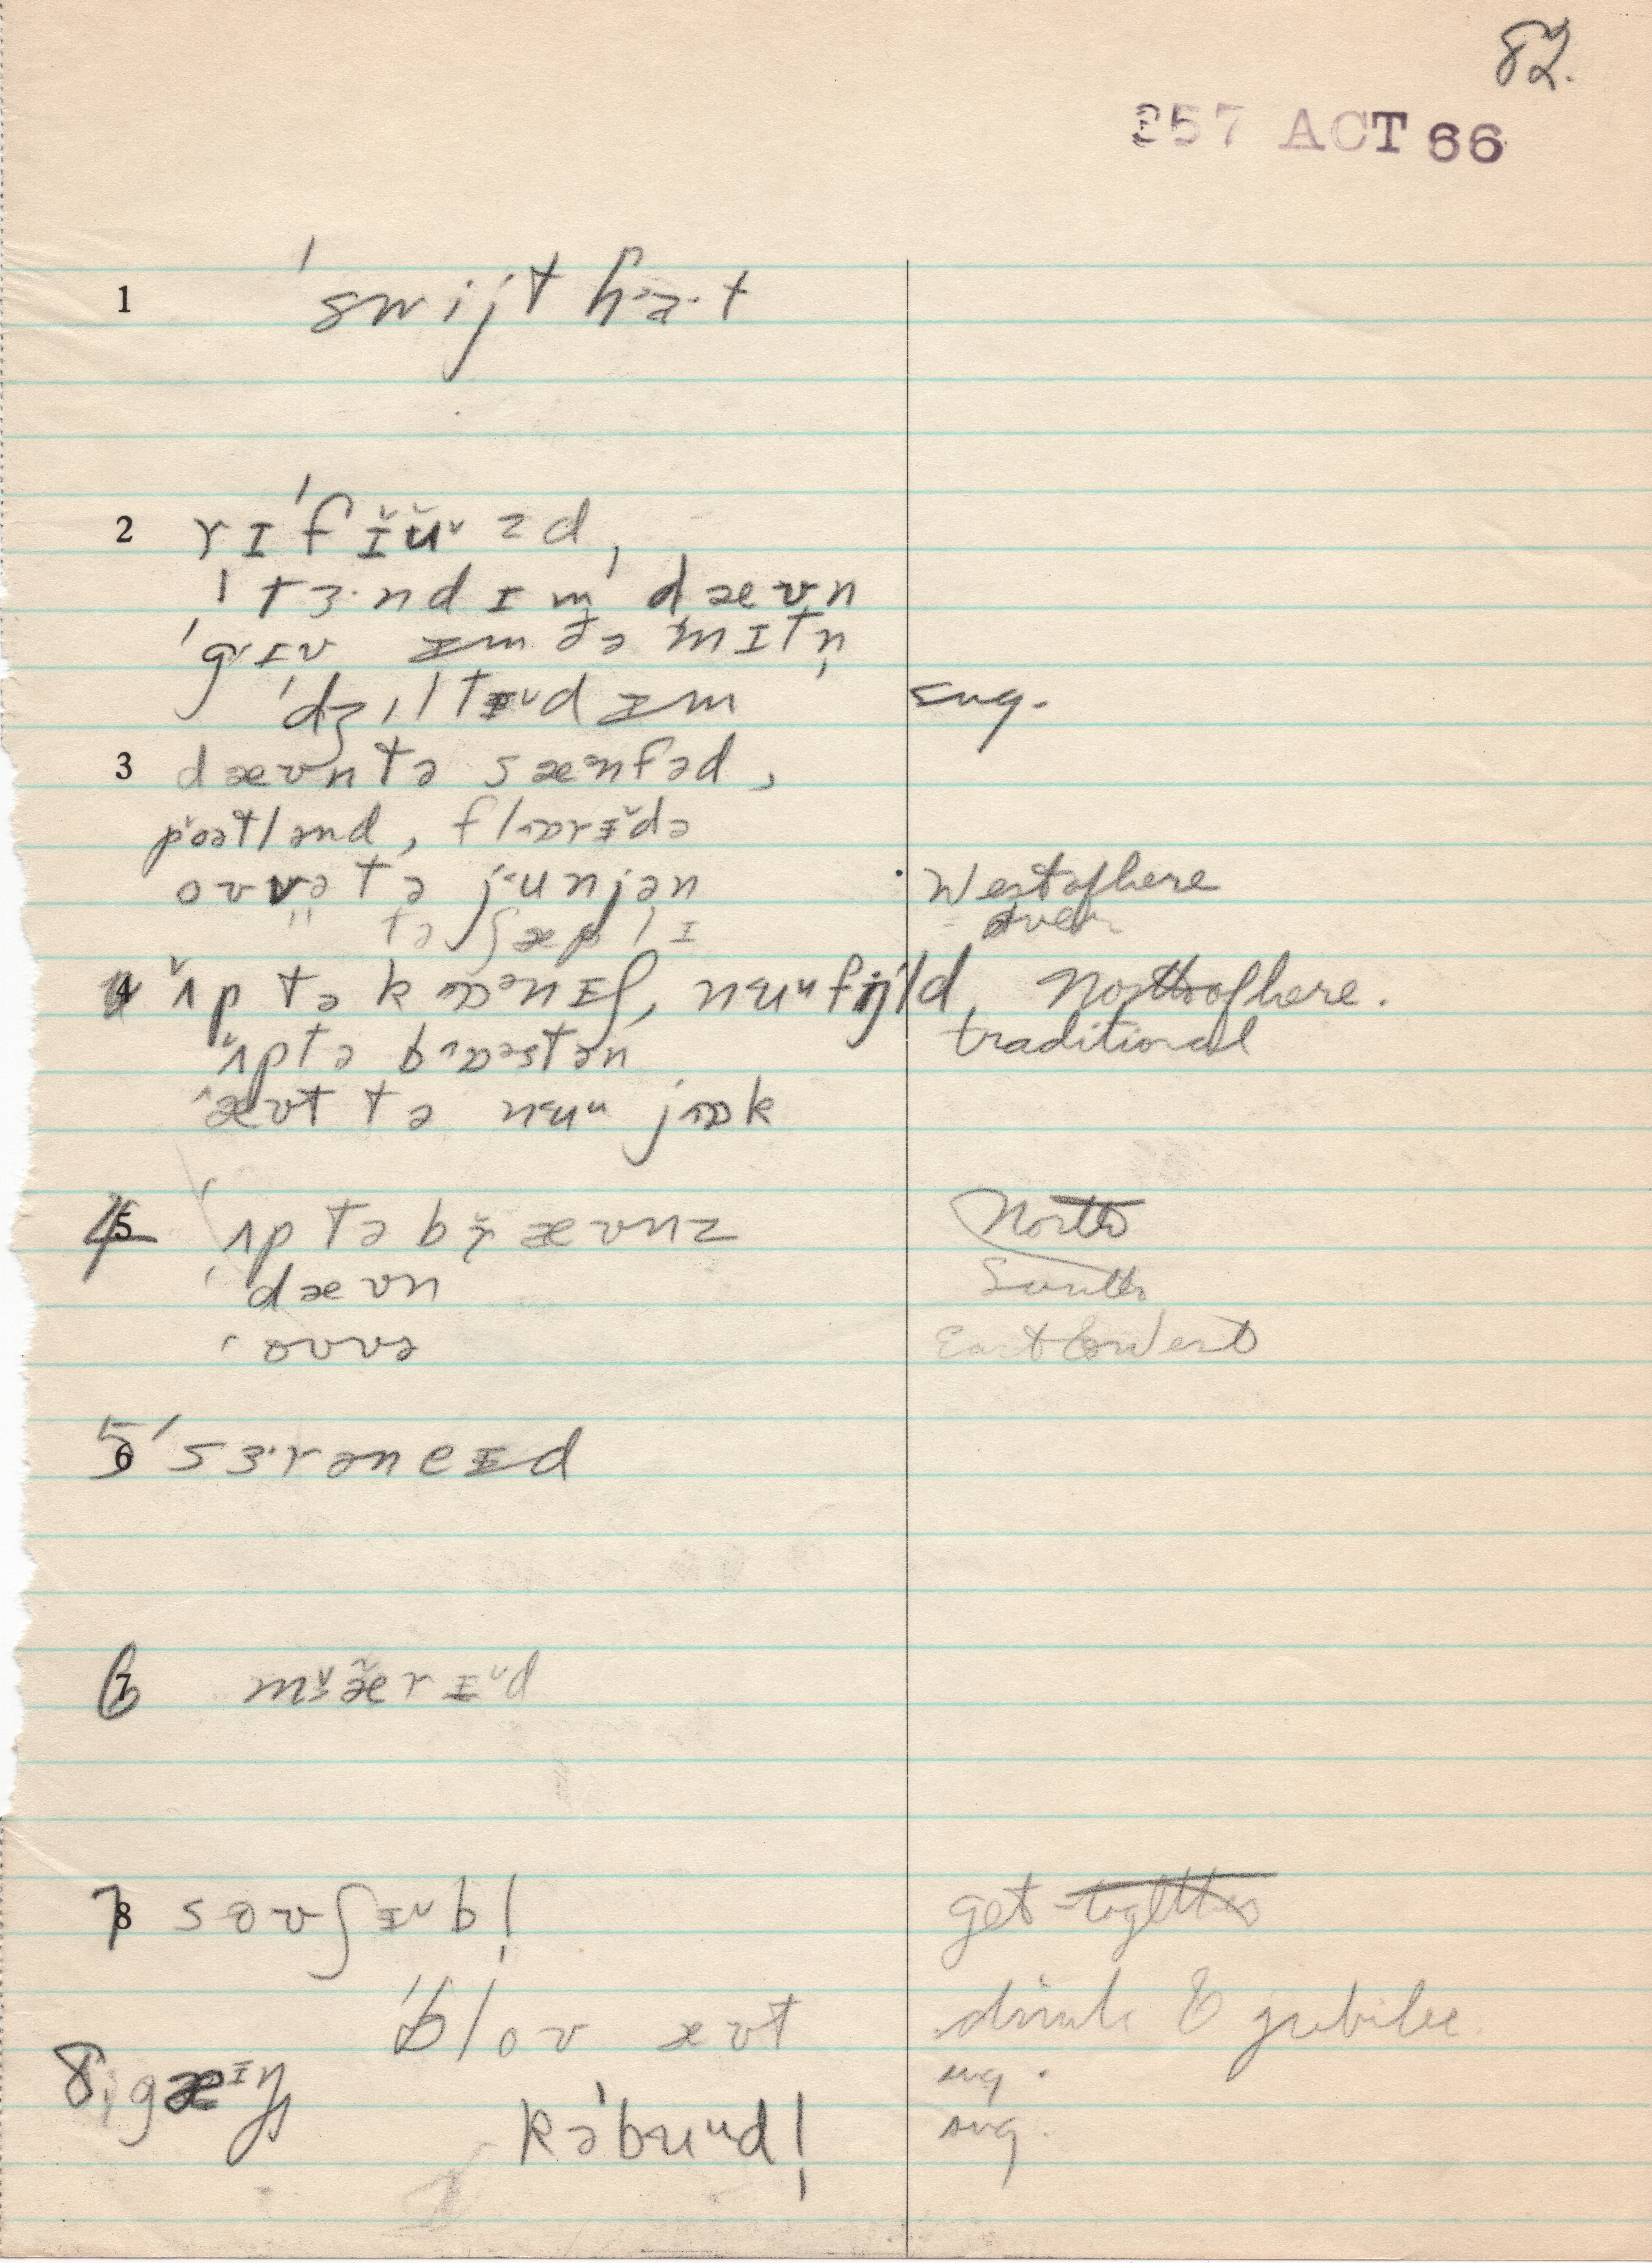 82.
257 ACT 66
1 ˈswijt hɑ·t
2 rɪˈfɪ̆ŭᵛzd,
ˈtɜ·nd ɪmˈ dæʊn
ˈgɪv ɪm ðə ˈmɪtn̩
ˈdʒɪltɪ̵ᵛd ɪm sug.
3 dæʊn tə sæᵊnfəd,
pɔətlənd, flɒrɪ̆də
oʊvə tə junjən . West of here
" tə ʃæplɪ = over
4 ˈʌp tə kɒᵊnɪʃ, nɪuᵘfijld North of here.
ˈʌp tə bɒᵊstən traditional
ˈæʊt tə nɪuᵘ jɒk
4 5 ˈʌp tə bɪ̆ æʊnz North
ˈdæʊn South
ˈoʊvə East & West
5 6 ˈsɜ·rəneɪd
6 7 mɪ̆æ̆rɪᵛd
7 8 soʊʃɪᵛb! get together
ˈbloʊ æʊt drink & jubilee
8. gæɪŋ sug.
kəˈbuᵘd! sug.